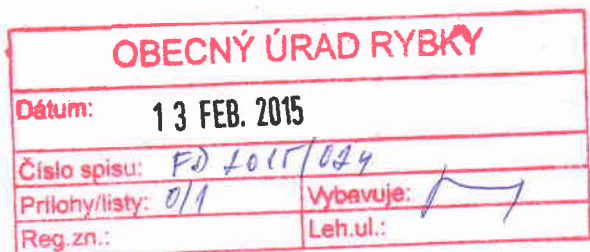 OBECNÝ ÚRAD RYBKY
Dátum: 13 FEB. 2015
Číslo spisu: FD 2015/024
Prílohy/listy: 0/1 Vybavuje:
Reg.zn.: Leh.ul.: